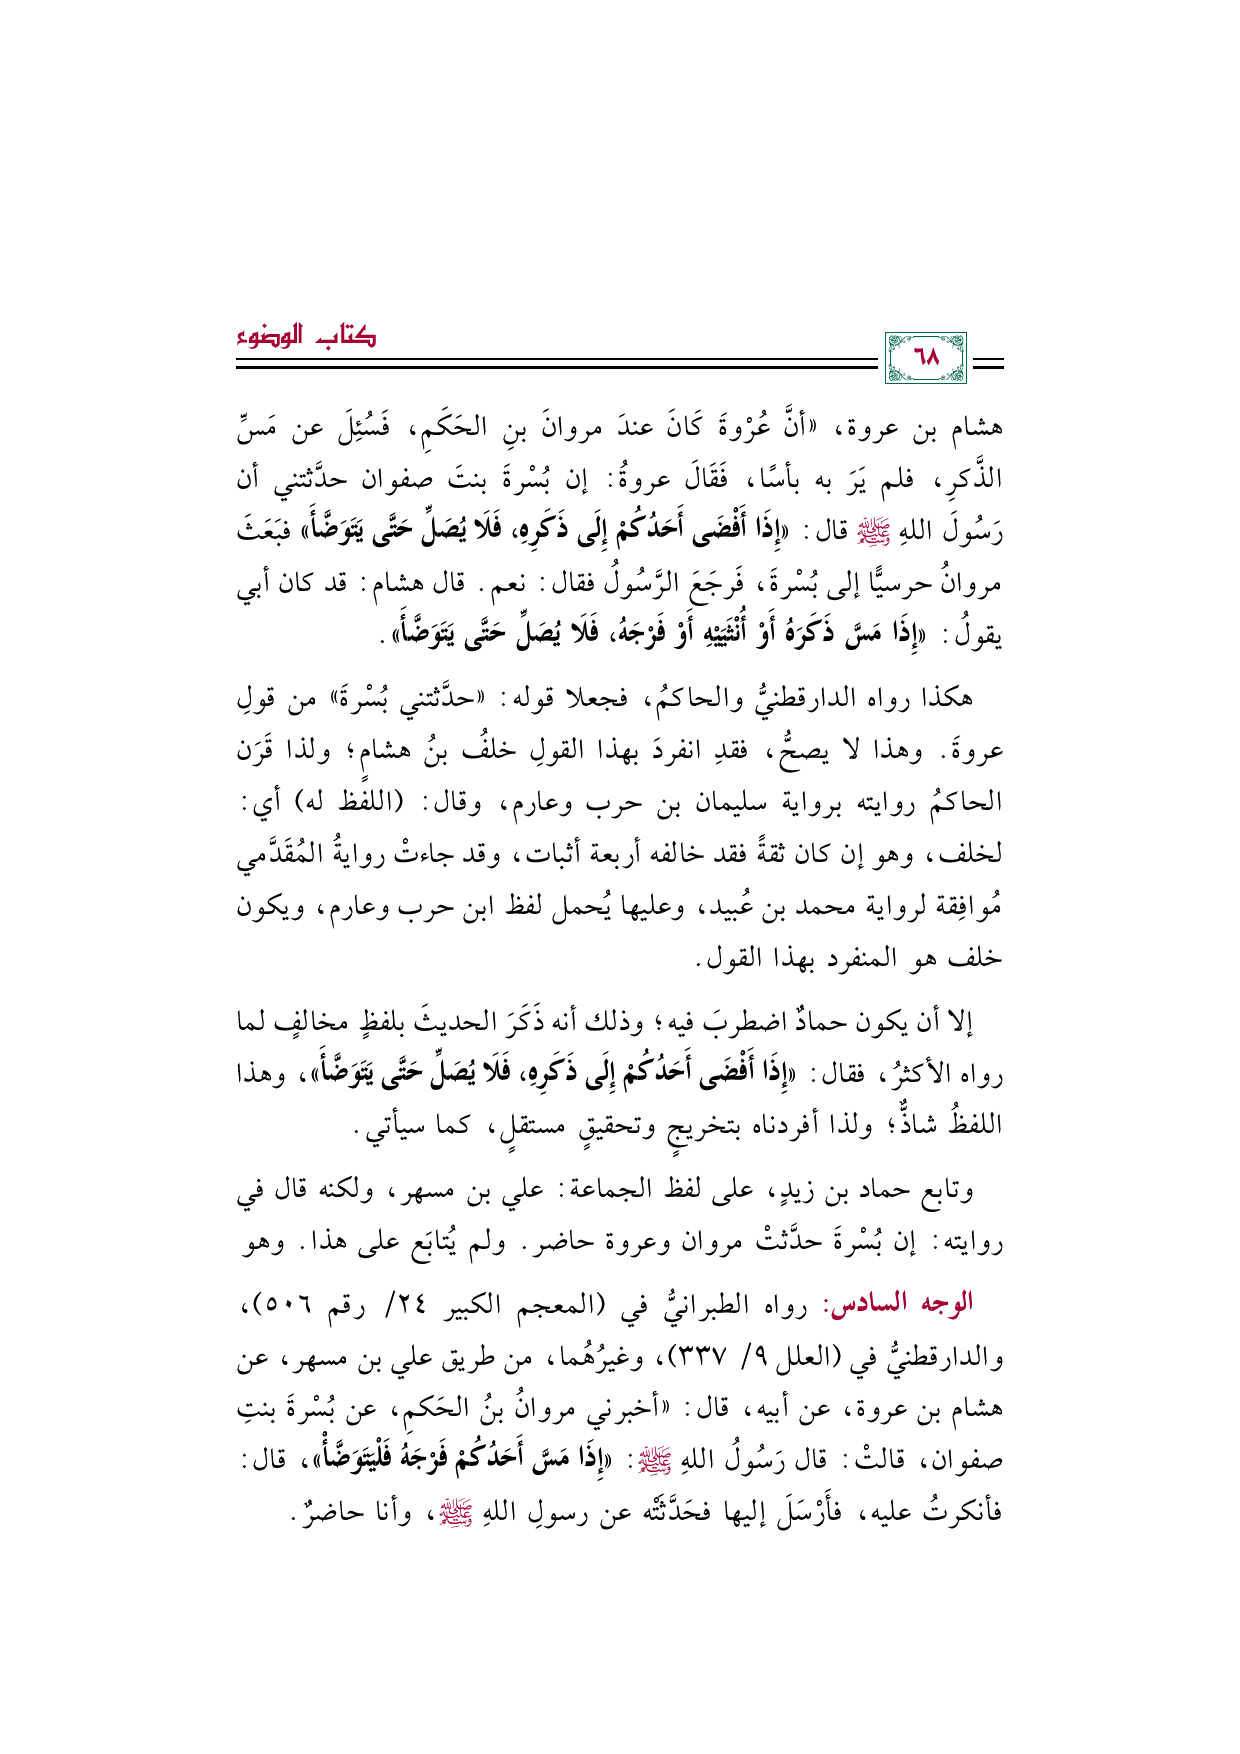 كتاب الوضوء
٦٨
هشام بن عروة، «أنَّ عُرْوةَ كَانَ عندَ مروانَ بنِ الحَكَمِ، فَسُئِلَ عن مَسِّ
الذَّكرِ، فلم يَرَ به بأسًا، فَقَالَ عروةُ: إن بُسْرةَ بنتَ صفوان حدَّثتني أن
رَسُولَ اللهِ ﷺ قال: «إِذَا أَفْضَى أَحَدُكُمْ إِلَى ذَكَرِهِ، فَلَا يُصَلِّ حَتَّى يَتَوَضَّأَ» فبَعَثَ
مروانُ حرسيًّا إلى بُسْرةَ، فَرجَعَ الرَّسُولُ فقال: نعم. قال هشام: قد كان أبي
يقولُ: «إِذَا مَسَّ ذَكَرَهُ أَوْ أُنْثَيَيْهِ أَوْ فَرْجَهُ، فَلَا يُصَلِّ حَتَّى يَتَوَضَّأَ».
هكذا رواه الدارقطنيُّ والحاكمُ، فجعلا قوله: «حدَّثتني بُسْرةَ» من قولِ
عروةَ. وهذا لا يصحُّ، فقدِ انفردَ بهذا القولِ خلفُ بنُ هشامٍ؛ ولذا قَرَن
الحاكمُ روايته برواية سليمان بن حرب وعارم، وقال: (اللفظ له) أي:
لخلف، وهو إن كان ثقةً فقد خالفه أربعة أثبات، وقد جاءتْ روايةُ المُقَدَّمي
مُوافِقة لرواية محمد بن عُبيد، وعليها يُحمل لفظ ابن حرب وعارم، ويكون
خلف هو المنفرد بهذا القول.
إلا أن يكون حمادٌ اضطربَ فيه؛ وذلك أنه ذَكَرَ الحديثَ بلفظٍ مخالفٍ لما
رواه الأكثرُ، فقال: «إِذَا أَفْضَى أَحَدُكُمْ إِلَى ذَكَرِهِ، فَلَا يُصَلِّ حَتَّى يَتَوَضَّأَ»، وهذا
اللفظُ شاذٌّ؛ ولذا أفردناه بتخريجٍ وتحقيقٍ مستقلٍ، كما سيأتي.
وتابع حماد بن زيدٍ، على لفظ الجماعة: علي بن مسهر، ولكنه قال في
روايته: إن بُسْرةَ حدَّثتْ مروان وعروة حاضر. ولم يُتابَع على هذا. وهو
الوجه السادس: رواه الطبرانيُّ في (المعجم الكبير ٢٤/ رقم ٥٠٦)،
والدارقطنيُّ في (العلل ٩/ ٣٣٧)، وغيرُهُما، من طريق علي بن مسهر، عن
هشام بن عروة، عن أبيه، قال: «أخبرني مروانُ بنُ الحَكمِ، عن بُسْرةَ بنتِ
صفوان، قالتْ: قال رَسُولُ اللهِ ﷺ: «إِذَا مَسَّ أَحَدُكُمْ فَرْجَهُ فَلْيَتَوَضَّأْ»، قال:
فأنكرتُ عليه، فأَرْسَلَ إليها فحَدَّثَتْه عن رسولِ اللهِ ﷺ، وأنا حاضرٌ.